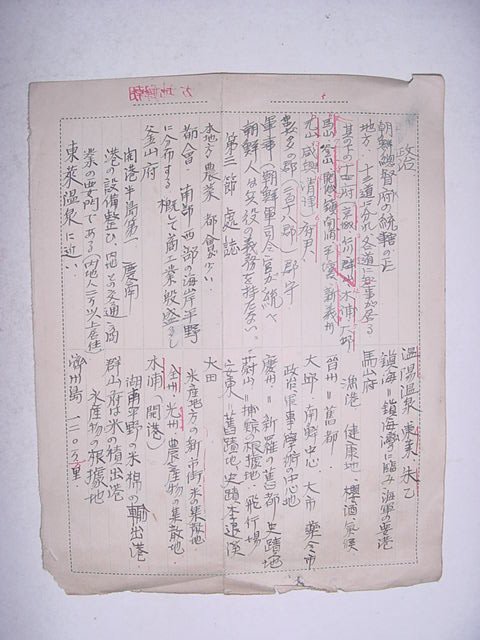 政治
朝鮮總督府の統轄の下
地方 十三道に分れ各道に知事が居る
其の下の十四府 京城 仁川 群山 木浦 大邱
馬山 釜山 平壤 新義州
元山 咸興 清津 府尹
郡 (二百十八郡) 郡守
軍事 朝鮮軍司令官が統べ
朝鮮人は兵役の義務を持たない。
第三節 處誌
本地方 農業 都會少い.
都會 南部 西部の海岸平野
に分布する 概して商工業殷盛なし
釜山府
開港 半島第一 慶南
港の設備整ひ、内地との交通、商
業の要門である(内地人二万以上居住)
東萊温泉に近い.
温陽温泉 東萊 朱乙
鎮海=鎮海湾に臨み海軍の要港
馬山府
漁港 健康地、櫻、酒、氣候
晉州=舊都.
大邱.南鮮中心 大市 藥令市.
政治軍事學術の中心地
慶州=新羅の舊都 史蹟地
蔚山=捕鯨の根據地 飛行場
安東=舊蹟地
大田
米産地方の新市街 米の集散地
全州 光州 農産物の集散地.
木浦 (開港)
湖南平野の米棉の輸出港.
群山府は米の積出港
水産物の根據地
濟州島 一二〇方里